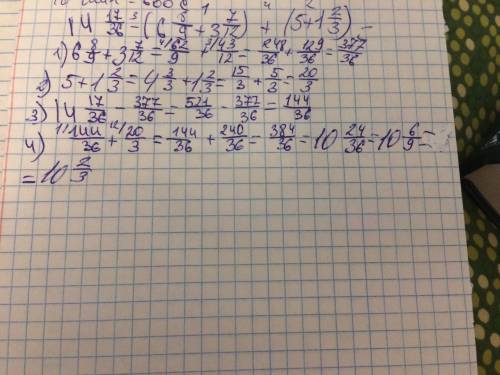 14 17/36 - (6 8/9 + 3 7/12) + (5 + 1 2/3) =
1) 6 8/9 + 3 7/12 = 62/9 + 43/12 = 248/36 + 129/36 = 377/36
2) 5 + 1 2/3 = 4 3/3 + 1 2/3 = 15/3 + 5/3 = 20/3
3) 14 17/36 - 377/36 = 521/36 - 377/36 = 144/36
4) 144/36 + 20/3 = 144/36 + 240/36 = 384/36 = 10 24/36 = 10 6/9 =
= 10 2/3